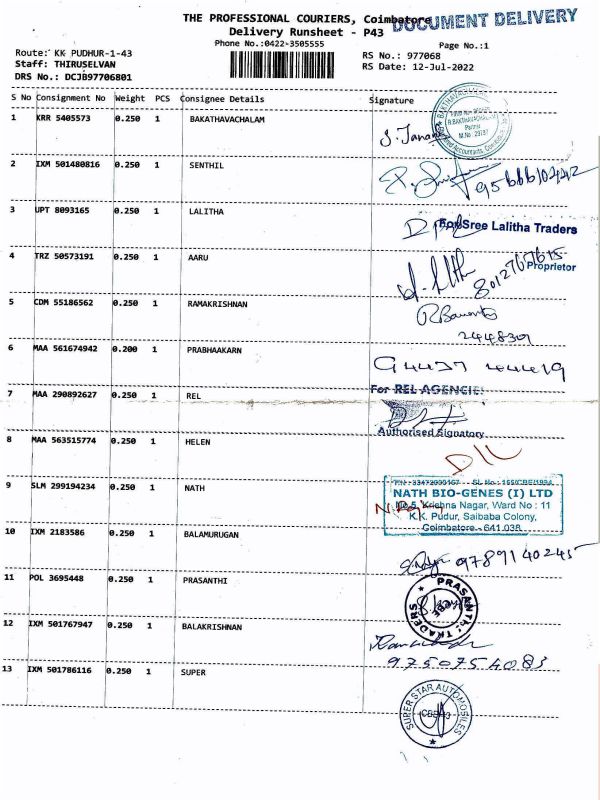 THE PROFESSIONAL COURIERS, Coimbatore
DOCUMENT DELIVERY
Delivery Runsheet - P43
Phone No.:0422-3505555
Page No.:1
Route: KK PUDHUR-1-43
RS No.: 977068
Staff: THIRUSELVAN
RS Date: 12-Jul-2022
DRS No.: DCJB97706801
S No Consignment No Weight PCS Consignee Details Signature
1 KRR 5405573 0.250 1 BAKATHAVACHALAM
2 IXM 501480816 0.250 1 SENTHIL
3 UPT 8093165 0.250 1 LALITHA
For Sree Lalitha Traders
4 TRZ 50573191 0.250 1 AARU
8012767615
Proprietor
5 CDM 55186562 0.250 1 RAMAKRISHNAN
6 MAA 561674942 0.200 1 PRABHAAKARN
7 MAA 290892627 0.250 1 REL
For REL AGENCIES
Authorised Signatory
8 MAA 563515774 0.250 1 HELEN
9 SLM 299194234 0.250 1 NATH
NATH BIO-GENES (I) LTD
No.5, Krishna Nagar, Ward No : 11
K.K. Pudur, Saibaba Colony,
Coimbatore - 641 038.
10 IXM 2183586 0.250 1 BALAMURUGAN
9789140245
11 POL 3695448 0.250 1 PRASANTHI
PRASANTHI TRADERS
12 IXM 501767947 0.250 1 BALAKRISHNAN
9750754083
13 IXM 501786116 0.250 1 SUPER
SUPER STAR AUTOMOBILES